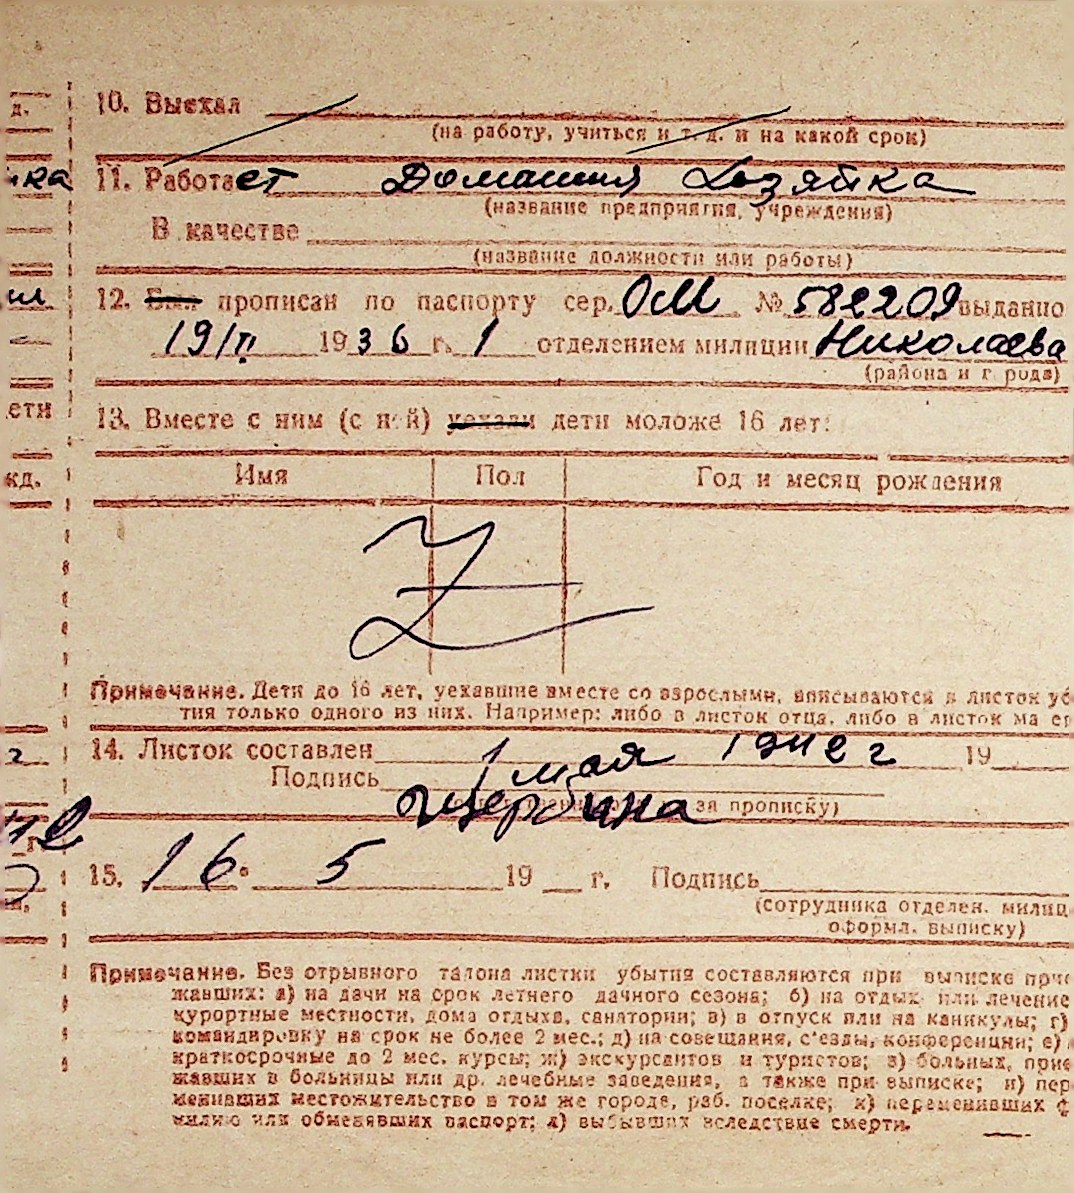 д.
10. Выехал
(на работу, учиться и т. д. и на какой срок)
ика
11. Работает Домашняя Хозяйка
(название предприятия, учреждения)
В качестве
(название должности или работы)
12. прописан по паспорту сер. ОМ № 582209 выданно
19/II 1936 г. 1 отделением милиции Николаева
(района и города)
ети
13. Вместе с ним (с ней) уехали дети моложе 16 лет:
жд.
Имя Пол Год и месяц рождения
Z
Примечание. Дети до 16 лет, уехавшие вместе со взрослыми, вписываются в листок уб
тия только одного из них. Например: либо в листок отца, либо в листок ма ер
г
14. Листок составлен 1 мая 1942 г 19
Подпись Щербина
за прописку)
г.
15. 16. 5 19 г. Подпись
(сотрудника отделен. милиц
оформл. выписку)
Примечание. Без отрывного талона листки убытия составляются при выписке прие
жавших: а) на дачи на срок летнего дачного сезона; б) на отдых или лечение
курортные местности, дома отдыха, санатории; в) в отпуск или на каникулы; г)
командировку на срок не более 2 мес.; д) на совещания, с'езды, конференции; е)
краткосрочные до 2 мес. курсы; ж) экскурсантов и туристов; з) больных, прие
жавших в больницы или др. лечебные заведения, а также при выписке; и) пер
менивших местожительство в том же городе, раб. поселке; к) переменивших ф
милию или обменявших паспорт; л) выбывших вследствие смерти.